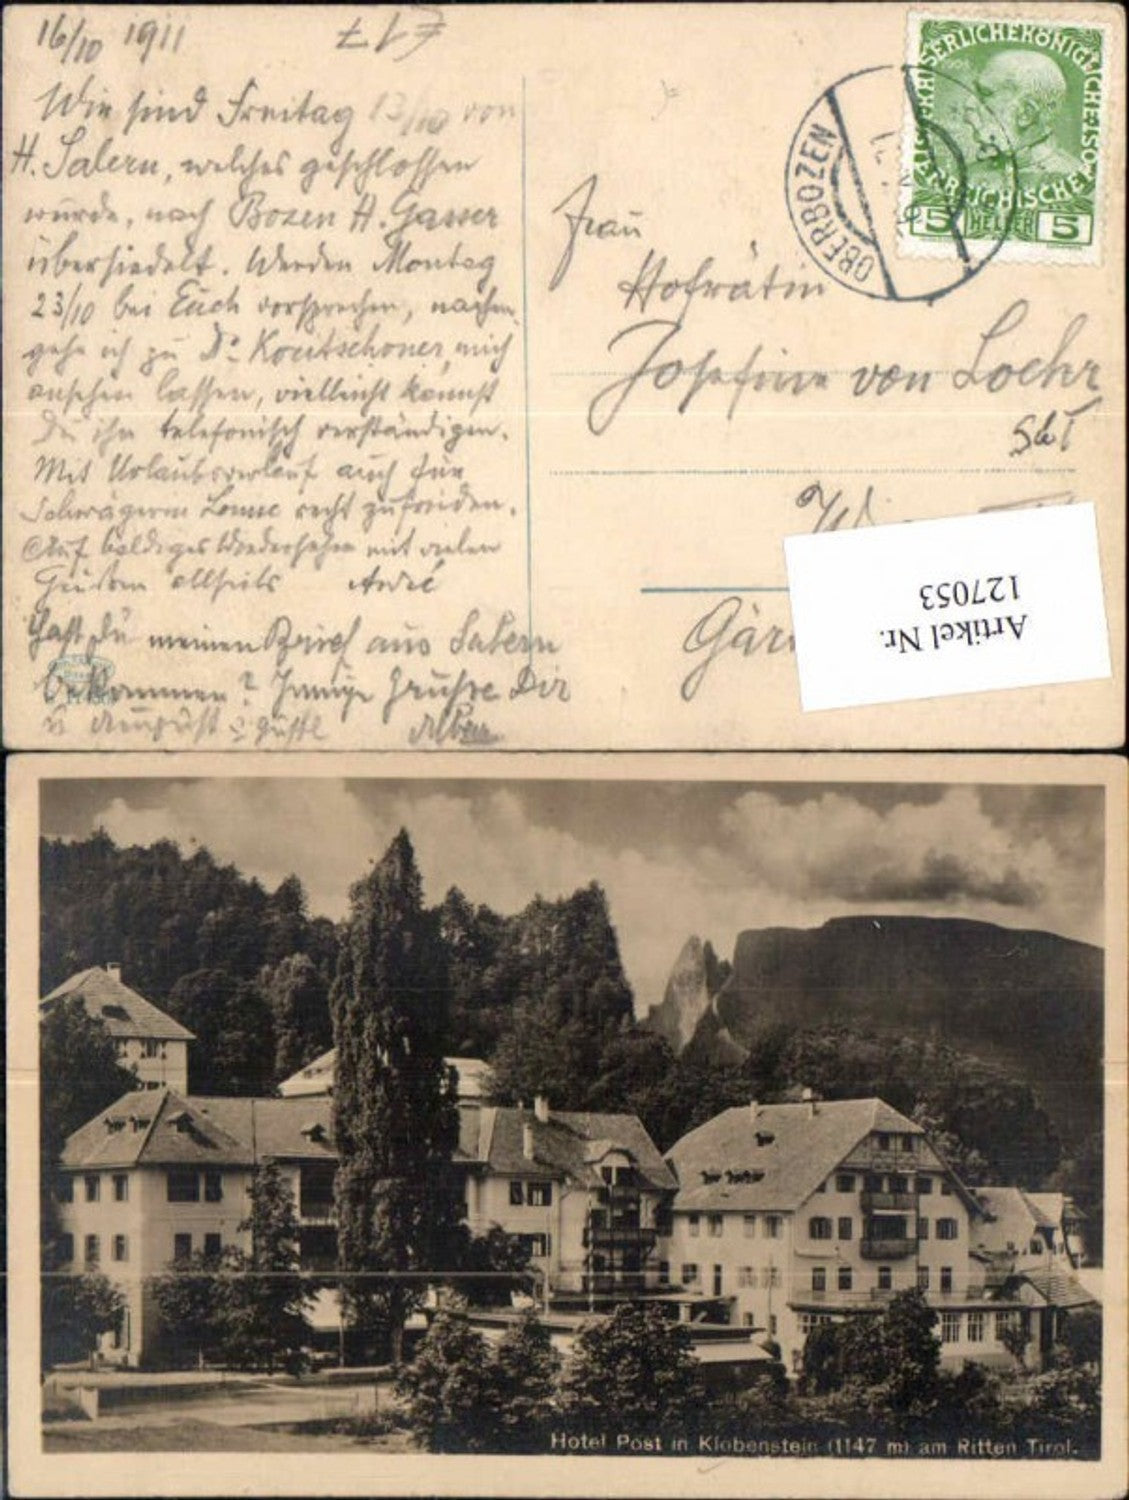 16/10 1911
Wir sind Freitag 13/10 von
H. Salern, welches geschlossen
wurde, nach Bozen H. Gasser
übersiedelt. Werden Montag
23/10 bei Euch vorsprechen, nachm.
gehe ich zu Dr. Koritschoner, mich
ansehen lassen, vielleicht kannst
Du ihn telefonisch verständigen.
Mit Urlaubsverlauf auch für
Schwägerin Louise recht zufrieden.
Auf baldiges Wiedersehen mit vielen
Grüßen allseits André
Hast Du meinen Brief aus Salern
bekommen? Innige Grüsse Dir
u August
KAISERLICHEKÖNIGLICHE
ÖSTERREICHISCHE POST
5 HELLER 5
OBERBOZEN
Frau
Hofrätin
Josefine von Loehr
Artikel Nr.
127053
Hotel Post in Klobenstein (1147 m) am Ritten Tirol.